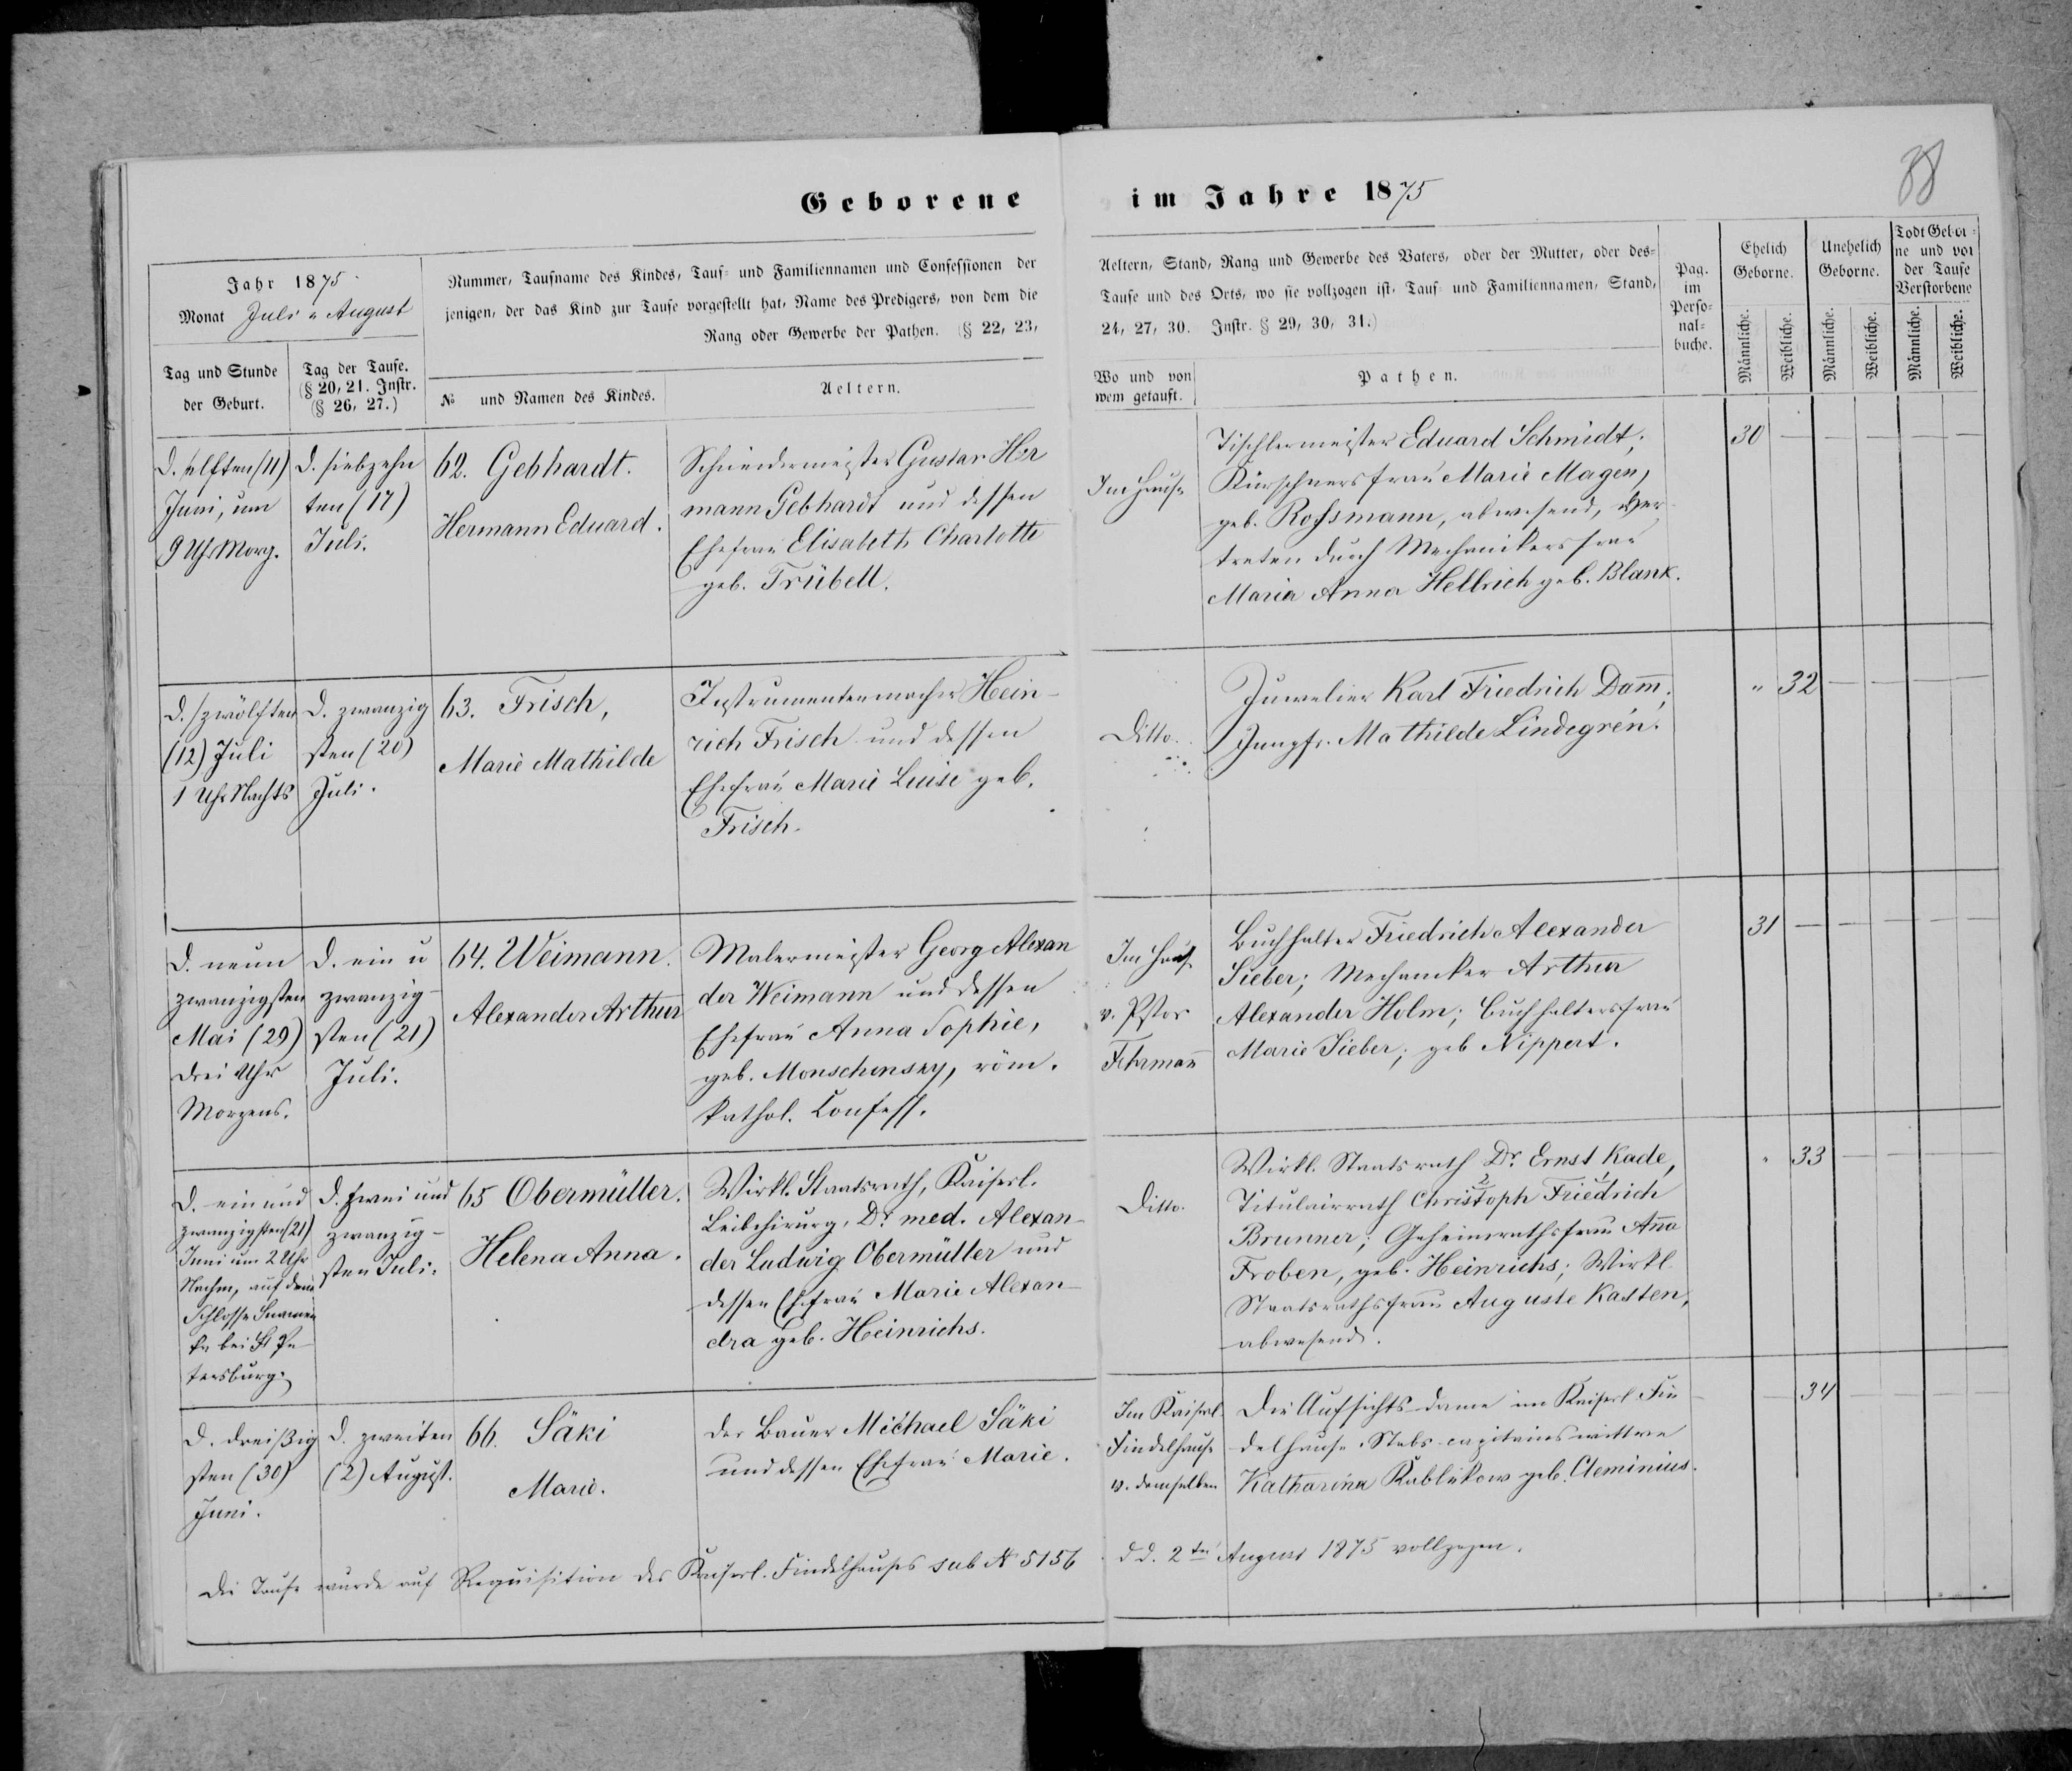 Geborene im Jahre 1875
38
Jahr 1875
Monat Juli u August
Tag und Stunde
der Geburt.
Tag der Taufe.
(§ 20, 21. Instr.
(§ 26, 27.)
Nummer, Taufname des Kindes, Tauf- und Familiennamen und Confessionen der
jenigen, der das Kind zur Taufe vorgestellt hat, Name des Predigers, von dem die
Rang oder Gewerbe der Pathen. (§ 22, 23,
№ und Namen des Kindes.
Aeltern.
Aeltern, Stand, Rang und Gewerbe des Vaters, oder der Mutter, oder des-
Taufe und des Orts, wo sie vollzogen ist, Tauf- und Familiennamen, Stand,
24, 27, 30. Instr. § 29, 30, 31.)
Wo und von
wem getauft.
Pathen.
Pag.
im
Perso-
nal-
buche.
Ehelich
Geborne.
Unehelich
Geborne.
Todt Gebor-
ne und vor
der Taufe
Verstorbene
Männliche.
Weibliche.
Männliche.
Weibliche.
Männliche.
Weibliche.
D. elften (11)
Juni, um
9 Uhr Morg.
D. siebzehn
ten (17)
Juli.
62. Gebhardt.
Hermann Eduard.
Schneidermeister Gustav Her
mann Gebhardt und dessen
Ehefrau Elisabeth Charlotte
geb. Trübell.
Im Hause
Tischlermeister Eduard Schmidt;
Kürschnersfrau Marie Magen,
geb. Rossmann, abwesend, ver
treten durch Mechanikersfrau
Maria Anna Hellrich geb. Blank.
30 — — — — —
D. zwölften
(12) Juli
1 Uhr Nachts
D. zwanzig
sten (20)
Juli.
63. Frisch,
Marie Mathilde
Instrumentenmacher Hein-
rich Frisch und dessen
Ehefrau Marie Luise geb.
Frisch.
Ditto.
Juwelier Karl Friedrich Dam̅;
Jungfr. Mathilde Lindegrén.
" 32 — — — —
D. neun
zwanzigsten
Mai (29)
drei Uhr
Morgens.
D. ein u
zwanzig-
sten (21)
Juli.
64. Weimann.
Alexander Arthur
Malermeister Georg Alexan
der Weimann und dessen
Ehefrau Anna Sophie,
geb. Monschensky, röm.
kathol. Confess.
Im Hause
v. Pstor
Fehrman̅
Buchhalter Friedrich Alexander
Sieber; Mechaniker Arthur
Alexander Holm; Buchhaltersfrau
Marie Sieber; geb Nippert.
31 — — — — —
D. ein und
zwanzigsten (21)
Juni um 2 Uhr
Nachm, auf dem
Schlosse Snamen
ka bei St Pe
tersburg.
D. zwei und
zwanzig-
sten Juli.
65 Obermüller.
Helena Anna.
Wirkl. Staatsrath, Kaiserl.
Leibchirurg, Dr med. Alexan-
der Ludwig Obermüller und
dessen Ehefrau Marie Alexan-
dra geb. Heinrichs.
Ditto.
Wirkl. Staatsrath Dr. Ernst Kade,
2 1
Titulairrath Christoph Friedrich
Brunner; Geheimrathsfrau An̅a
Froben, geb. Heinrichs; Wirkl.
Staatsrathsfrau Auguste Kasten,
abwesend.
" 33 — — — —
D. dreißig
sten (30)
Juni.
D. zweiten
(2) August.
66. Säki
Marie.
Der Bauer Michael Säki
und dessen Ehefrau Marie.
Im Kaiserl.
Findelhause
v. demselben
Die Aufsichts-dame im Kaiserl. Fin
delhause, Stabs-capitainswittwe
Katharina Kablukow geb. Cleminius.
— 34 — — — —
Die Taufe wurde auf Requisition des Kaiserl. Findelhauses sub № 5156 d d. 2ten August 1875 vollzogen.